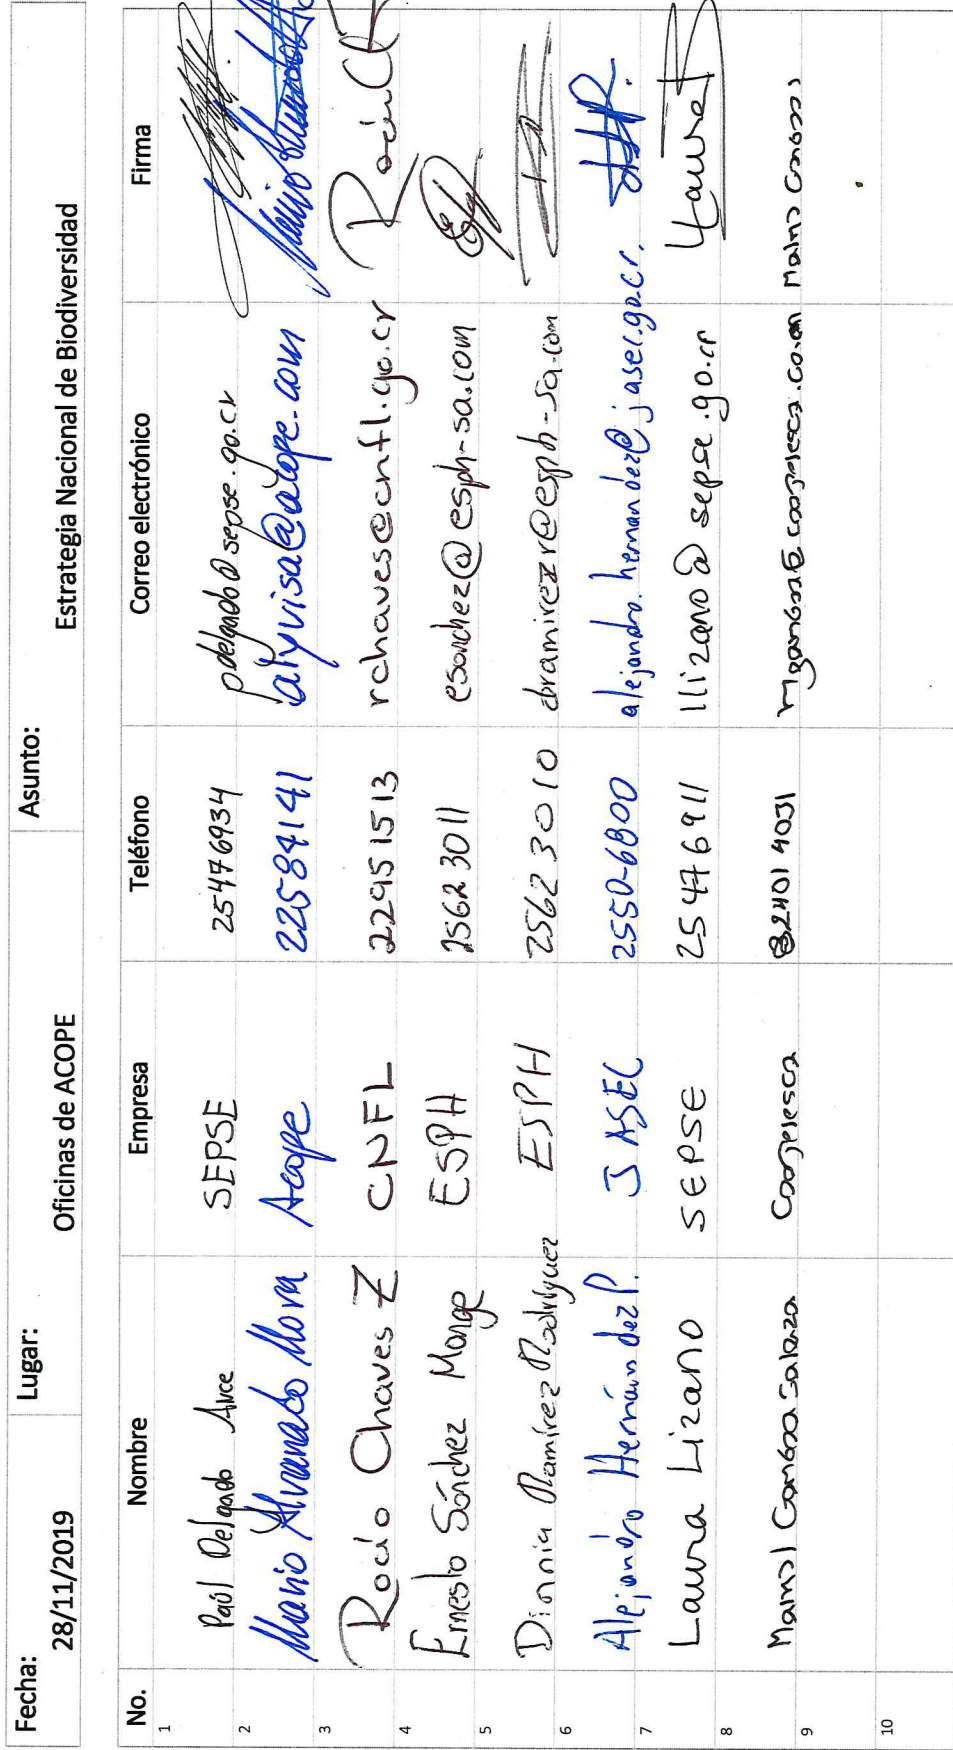 Fecha: Lugar: Asunto:
28/11/2019 Oficinas de ACOPE Estrategia Nacional de Biodiversidad
No. Nombre Empresa Teléfono Correo electrónico Firma
1 Paúl Delgado SEPSE 25476934 pdelgado@sepse.go.cr
2 Mario Alvarado Mora Acope 22584141 alyvisa@acope.com
3 Rocío Chaves Z CNFL 22951513 rchaves@cnfl.go.cr Rocío Ch
4 Ernesto Sánchez Monge ESPH 2562 3011 esanchez@esph-sa.com
5 Dionnia Ramírez Rodríguez ESPH 2562 3010 dramirezr@esph-sa.com
6 Alejandro Hernández P. JASEC 2550-6800 alejandro.hernandez@jasec.go.cr.
7 Laura Lizano SEPSE 2547 6911 llizano@sepse.go.cr Laura
8 2401 4031
9
10